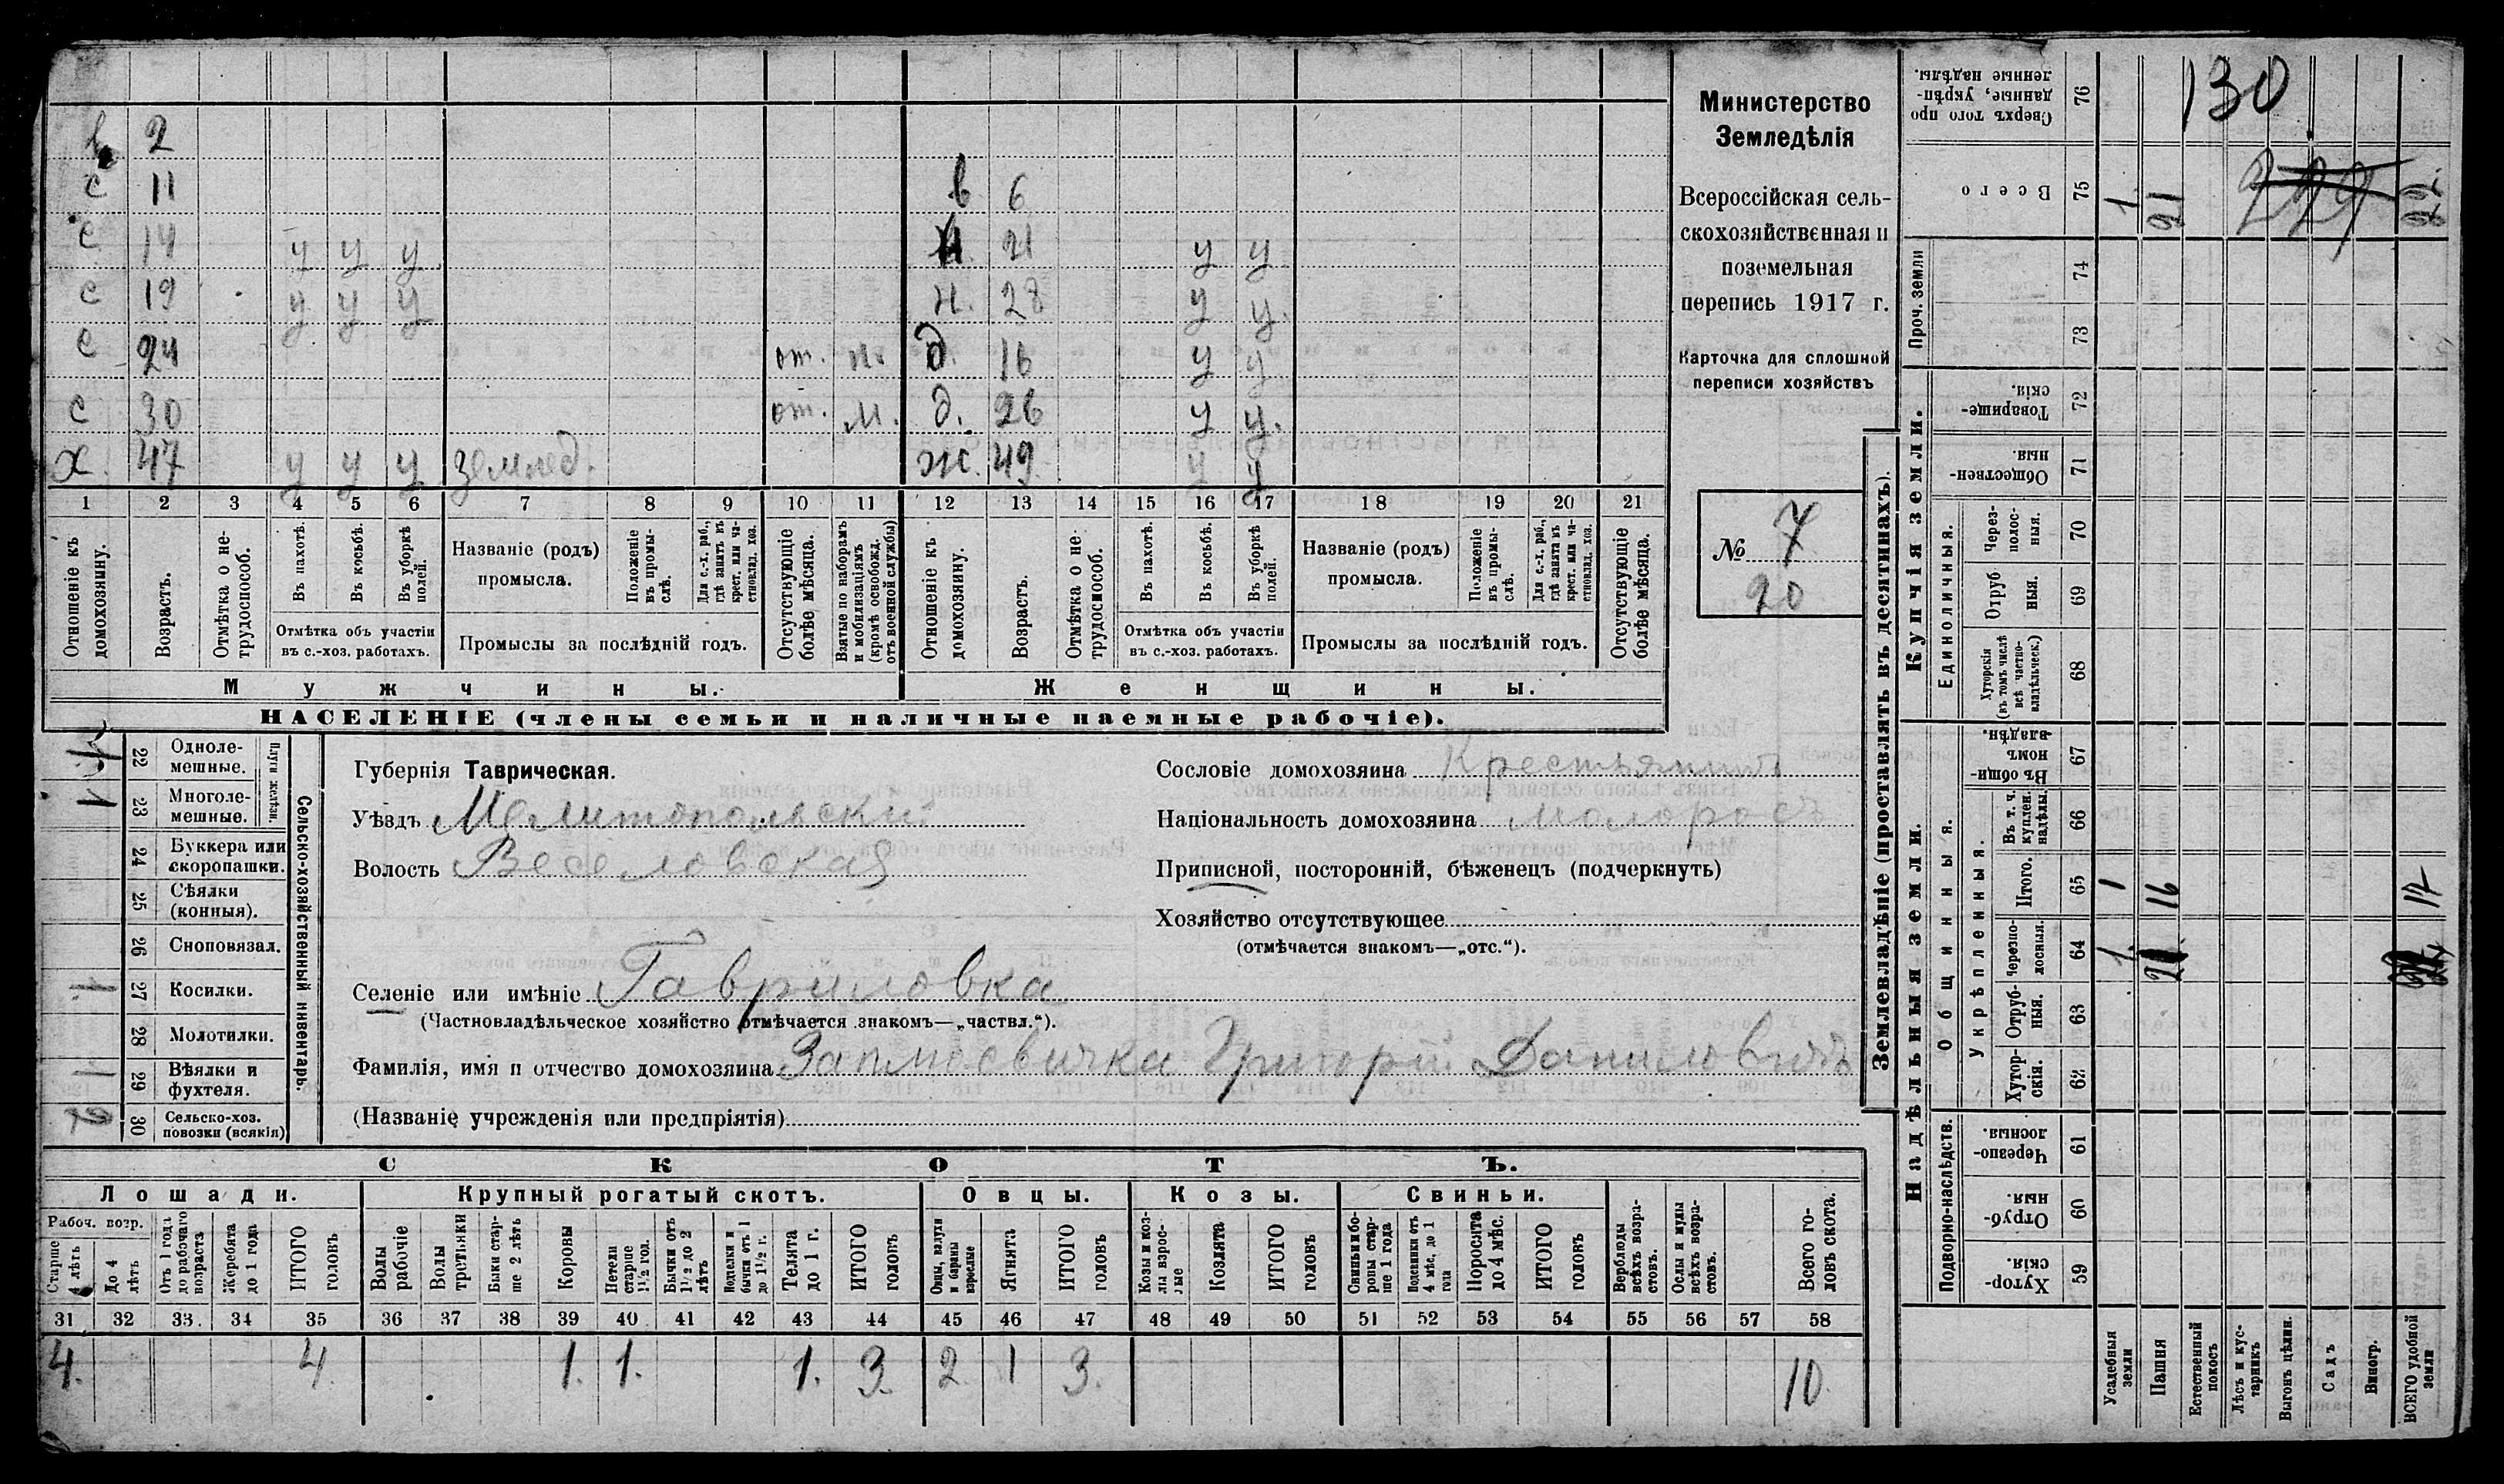 в 2
с 11 в 6
с 14 у у у н. 21 у у
с 19 у у у н. 28 у у.
с 24 от. м. д. 16 у у
с 30 от. м. д. 26 у у.
х. 47 у у у землед. ж. 49 у у
1 2 3 4 5 6 7 8 9 10 11 12 13 14 15 16 17 18 19 20 21
Отношеніе къ домохозяину.
Возрастъ.
Отмѣтка о не-трудоспособ.
Въ пахотѣ.
Въ косьбѣ.
Въ уборкѣ полей.
Отмѣтка объ участіи
въ с.-хоз. работахъ.
Названіе (родъ)
промысла.
Положеніе въ промы-слѣ.
Для с.-х. раб., гдѣ занятъ въ крест. или ча-стновлад. хоз.
Промыслы за послѣдній годъ.
Отсутствующіе болѣе мѣсяца.
Взятые по наборамъ и мобилизаціямъ (кромѣ освобожд. отъ военной службы)
Отношеніе къ домохозяину.
Возрастъ.
Отмѣтка о не-трудоспособ.
Въ пахотѣ.
Въ косьбѣ.
Въ уборкѣ полей.
Отмѣтка объ участіи
въ с.-хоз. работахъ.
Названіе (родъ)
промысла.
Положеніе въ промы-слѣ.
Для с.-х. раб., гдѣ занята въ крест. или ча-стновлад. хоз.
Промыслы за послѣдній годъ.
Отсутствующіе болѣе мѣсяца.
Мужчины.
Женщины.
НАСЕЛЕНІЕ (члены семьи и наличные наемные рабочіе).
Министерство
Земледѣлія
Всероссійская сель-
скохозяйственная и
поземельная
перепись 1917 г.
Карточка для сплошной
переписи хозяйствъ
№ 7
20
22 Одноле-мешные.
1 23 Многоле-мешные.
Плуги желѣзн.
24 Буккера или скоропашки.
25 Сѣялки (конныя).
26 Сноповязал.
1. 27 Косилки.
28 Молотилки.
1 29 Вѣялки и фухтеля.
2 30 Сельско-хоз. повозки (всякія)
Сельско-хозяйственный инвентарь.
Губернія Таврическая.
Уѣздъ Мелитопольский
Волость Веселовская
Селеніе или имѣніе Гавриловка
(Частновладѣльческое хозяйство отмѣчается знакомъ—„частвл.“).
Фамилія, имя и отчество домохозяина Григорій Даниловичъ
(Названіе учрежденія или предпріятія)
Сословіе домохозяина Крестьянинъ
Національность домохозяина малоросъ
Приписной, посторонній, бѣженецъ (подчеркнуть)
Хозяйство отсутствующее
(отмѣчается знакомъ—„отс.“).
СКОТЪ.
Лошади.
Крупный рогатый скотъ.
Овцы.
Козы.
Свиньи.
Рабоч. возр.
Старше 4 лѣтъ
До 4 лѣтъ
Отъ 1 года до рабочаго возраста
Жеребята до 1 года
ИТОГО головъ
Волы рабочіе
Волы третьяки
Быки стар-ше 2 лѣтъ
Коровы
Нетели старше 1 1/2 год.
Бычки отъ 1 1/2 до 2 лѣтъ
бычки отъ 1 до 1 1/2 г.
Телята до 1 г.
ИТОГО головъ
Овцы, валухи и бараны взрослые
Ягнята
ИТОГО головъ
Козы и коз-лы взрос-лые
Козлята
ИТОГО головъ
Свиньи и бо-ровы стар-ше 1 года
Подсвинки отъ 4 мѣс. до 1 года
Поросята до 4 мѣс.
ИТОГО головъ
Верблюды всѣхъ возра-стовъ.
Ослы и мулы всѣхъ возра-стовъ.
Всего го-ловъ скота.
31 32 33. 34 35 36 37 38 39 40 41 42 43 44 45 46 47 48 49 50 51 52 53 54 55 56 57 58
4. 4. 1. 1. 1. 3. 2. 1 3. 10.
Землевладѣніе (проставлять въ десятинахъ).
Купчія земли.
Надѣльныя земли.
Сверхъ того про-данные, укрѣп-ленные надѣлы. 76 130
Всего 75 1. 21 229 22.
Проч. земли
74
73
Товарище-скія. 72
Обществен-ныя. 71
Единоличныя.
Через-полос-ныя. 70
Отруб-ныя. 69
Хуторскія (въ томъ числѣ всѣ частно-владѣльческ.) 68
Въ общи-номъ владѣн. 67
Общинныя.
Укрѣпленныя.
Въ т. ч. куплен. надѣлы. 66
Итого. 65 1 16 17
Черезпо-лосныя. 64 1. 21.
Отруб-ныя. 63
Хутор-скія. 62
Подворно-наслѣдств.
Черезпо-лосныя. 61
Отруб-ныя. 60
Хутор-скія. 59
Усадебныя земли
Пашня
Естественный покосъ
Лѣсъ и кус-тарникъ
Выгонъ цѣлин.
Садъ
Виногр.
ВСЕГО удобной земли